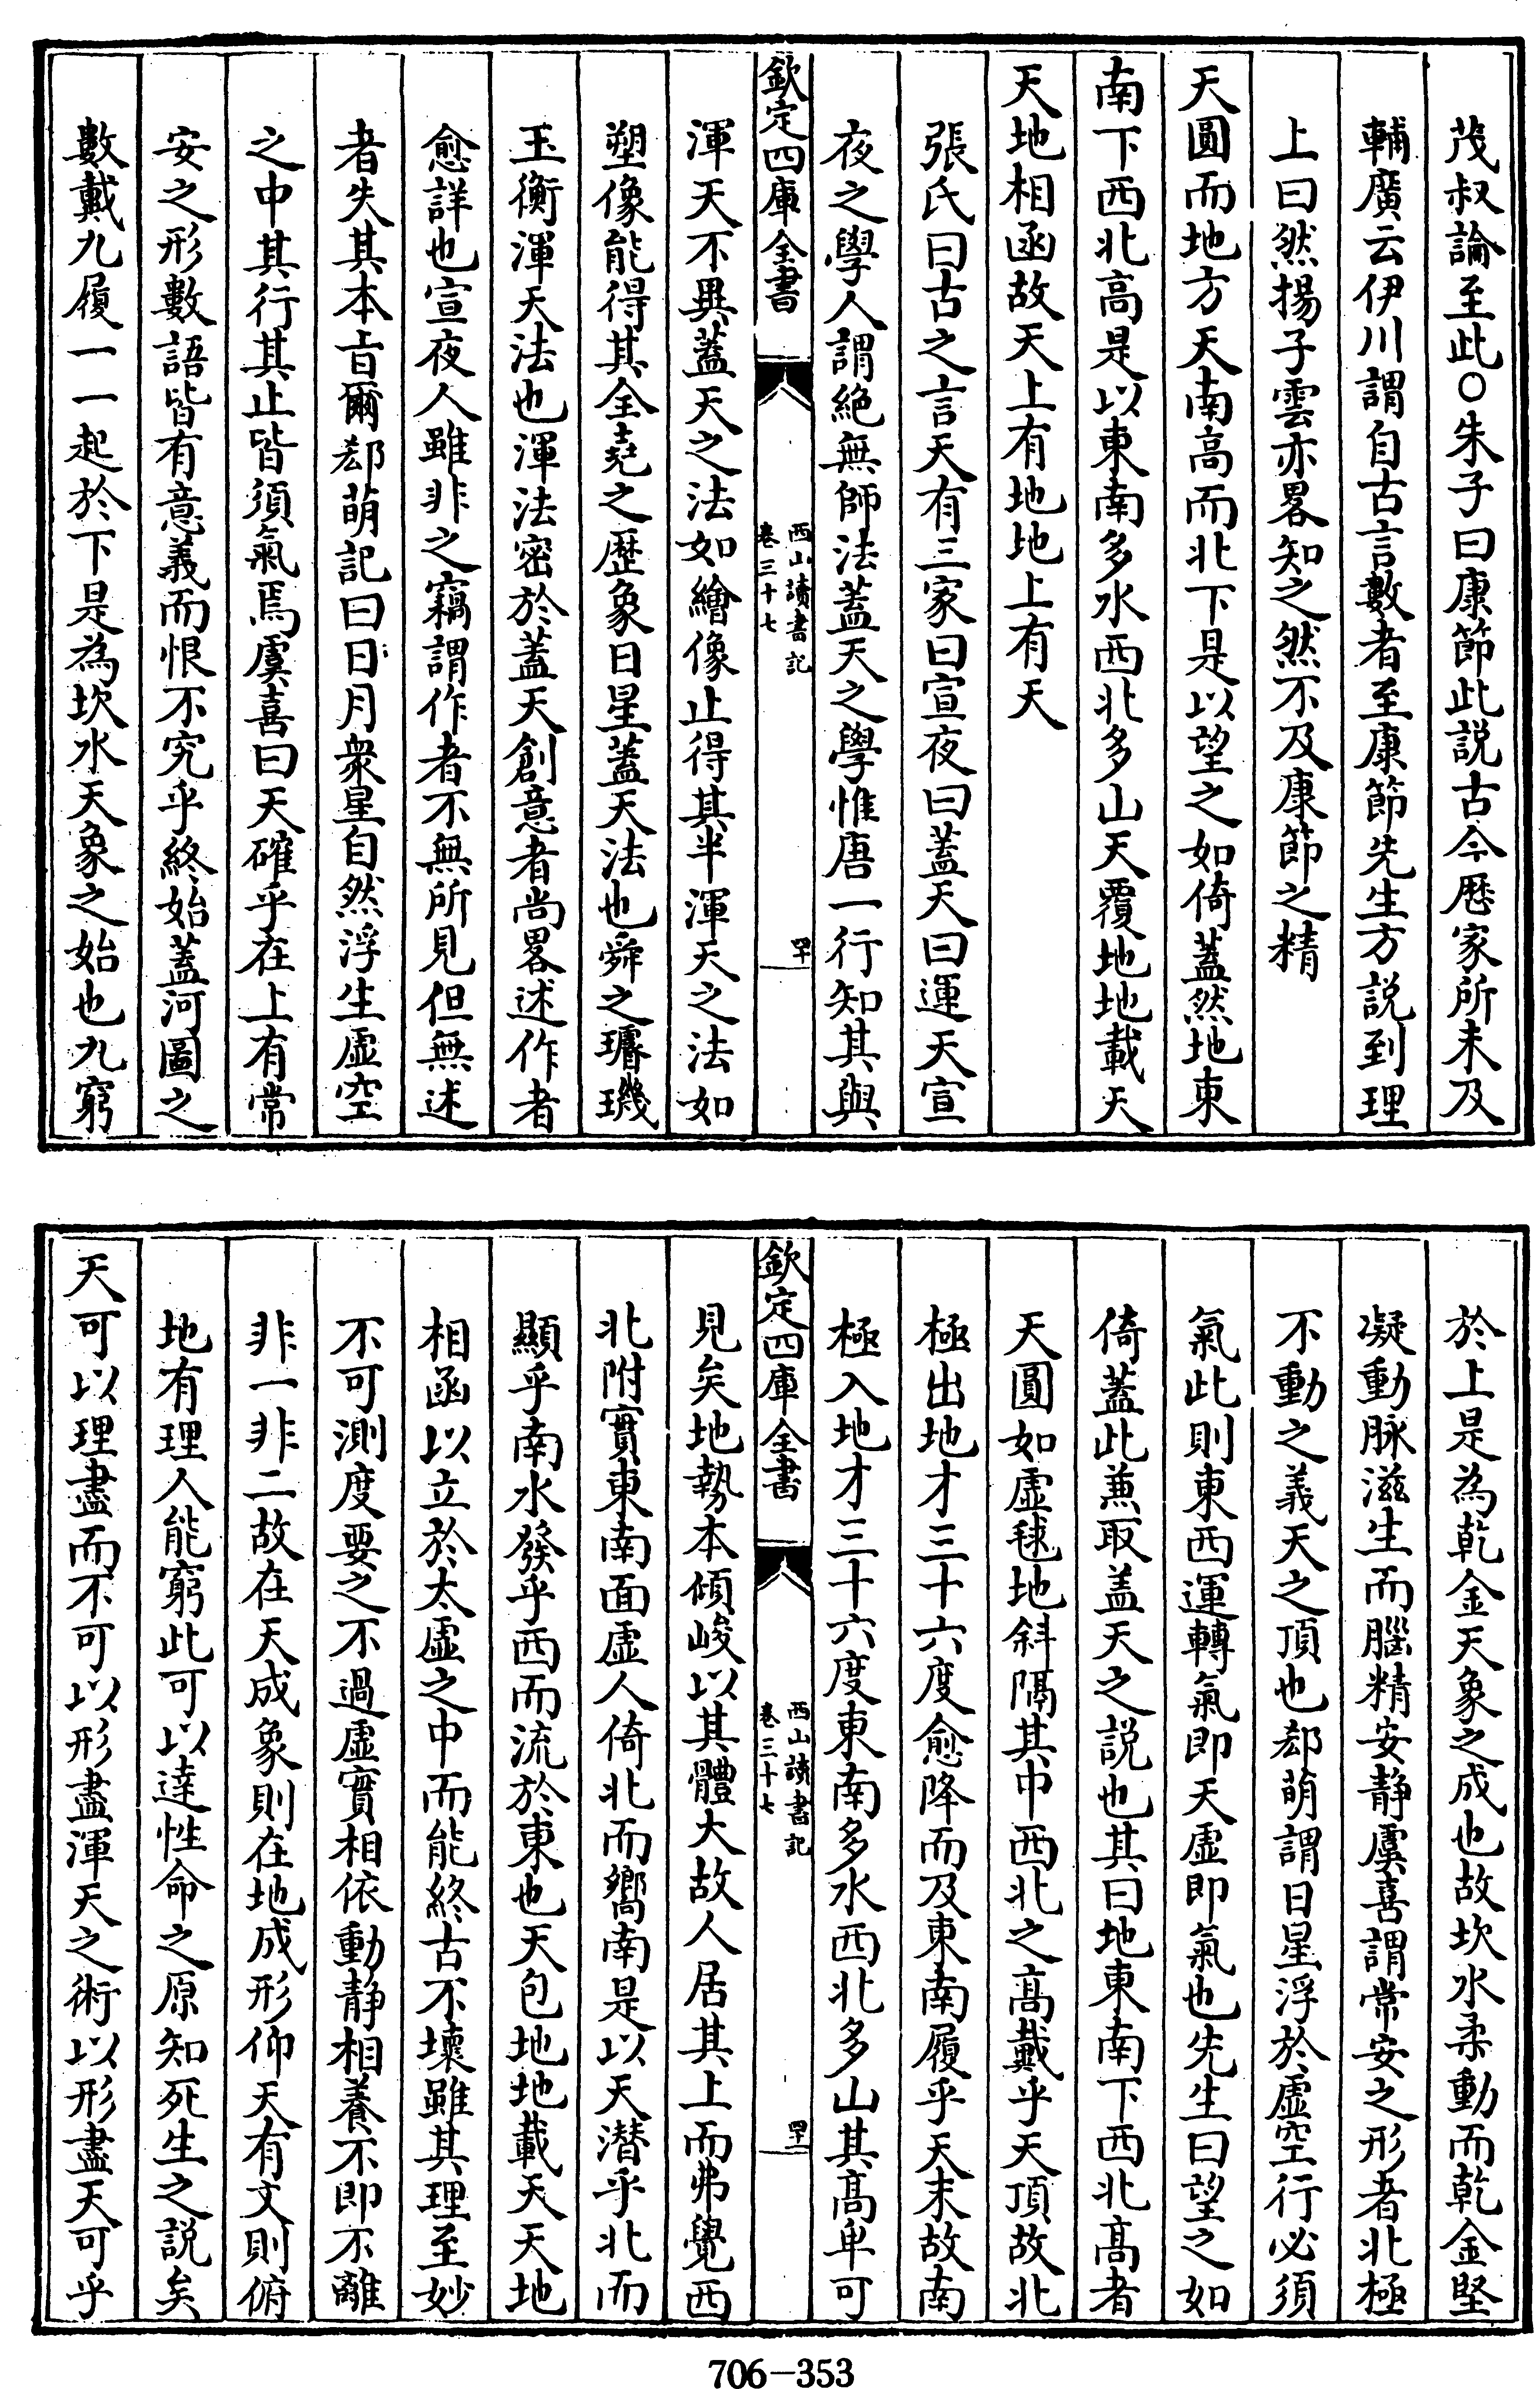 茂叔論至此○朱子曰康節此説古今厯家所未及
輔廣云伊川謂自古言數者至康節先生方説到理
上曰然揚子雲亦畧知之然不及康節之精
天圓而地方天南高而北下是以望之如倚蓋然地東
南下西北高是以東南多水西北多山天覆地地載天
天地相函故天上有地地上有天
張氏曰古之言天有三家曰宣夜曰蓋天曰運天宣
夜之學人謂絶無師法蓋天之學惟唐一行知其與
欽定四庫全書
西山讀書記
卷三十七
四十
渾天不異蓋天之法如繪像止得其半渾天之法如
塑像能得其全堯之厯象日星蓋天法也舜之璿璣
玉衡渾天法也渾法密於蓋天創意者尚畧述作者
愈詳也宣夜人雖非之竊謂作者不無所見但無述
者失其本㫖爾郄萌記曰日月衆星自然浮生虚空
之中其行其止皆須氣焉虞喜曰天確乎在上有常
安之形數語皆有意義而恨不究乎終始蓋河圖之
數戴九履一一起於下是為坎水天象之始也九窮
於上是為乾金天象之成也故坎水柔動而乾金堅
凝動脉滋生而腦精安静虞喜謂常安之形者北極
不動之義天之頂也郄萌謂日星浮於虚空行必須
氣此則東西運轉氣即天虚即氣也先生曰望之如
倚蓋此兼取蓋天之説也其曰地東南下西北髙者
天圓如虚毬地斜隔其中西北之髙戴乎天頂故北
極出地才三十六度愈降而及東南履乎天末故南
極入地才三十六度東南多水西北多山其髙卑可
欽定四庫全書
西山讀書記
卷三十七
四十一
見矣地勢本傾峻以其體大故人居其上而弗覺西
北附實東南面虚人倚北而嚮南是以天潛乎北而
顯乎南水發乎西而流於東也天包地地載天天地
相函以立於太虚之中而能終古不壞雖其理至妙
不可測度要之不過虚實相依動静相養不即不離
非一非二故在天成象則在地成形仰天有文則俯
地有理人能窮此可以逹性命之原知死生之説矣
天可以理盡而不可以形盡渾天之術以形盡天可乎
706—353